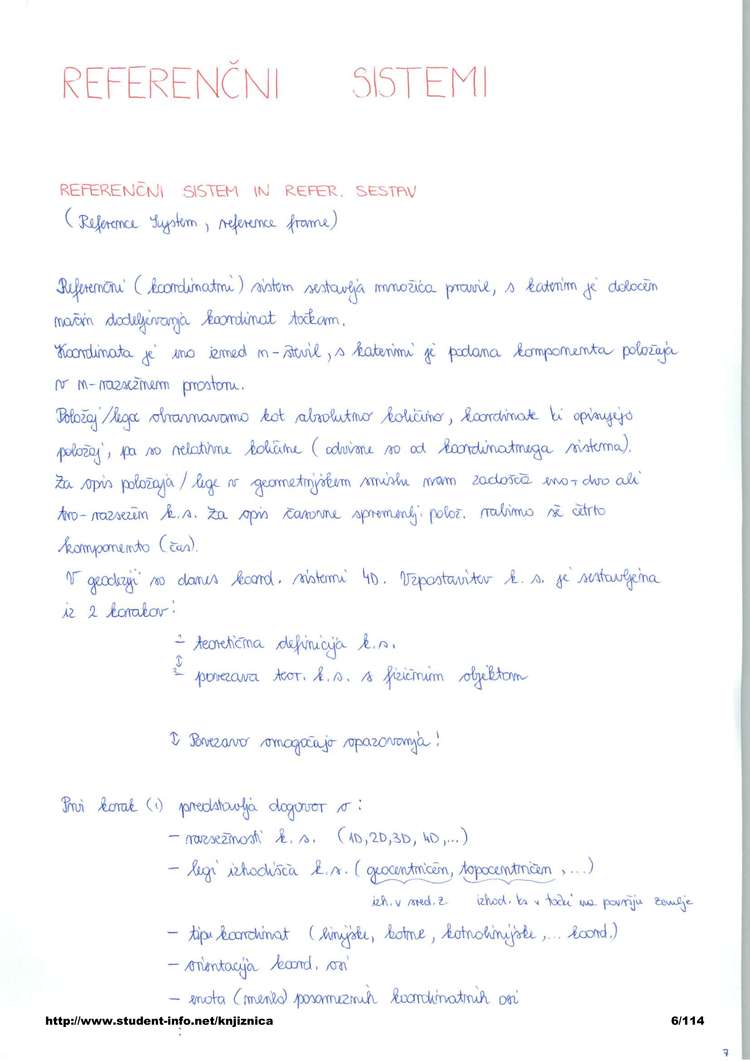 REFERENČNI SISTEMI
REFERENČNI SISTEM IN REFER. SESTAV
(Reference System, reference frame)
Referenčni (koordinatni) sistem sestavlja množica pravil, s katerim je določen
način dodeljevanja koordinat točkam.
Koordinata je eno izmed n-števil, s katerimi je podana komponenta položaja
v n-razsežnem prostoru.
Položaj/lega obravnavamo kot absolutno količino, koordinate ki opisujejo
položaj, pa so relativne količine (odvisne so od koordinatnega sistema).
Za opis položaja/lege v geometrijskem smislu nam zadošča eno-, dvo ali
tro-razsežen k.s. Za opis časovne spremenlj. polož. rabimo še četrto
komponento (čas).
V geodeziji so danes koord. sistemi 4D. Vzpostavitev k.s. je sestavljena
iz 2 korakov:
1- teoretična definicija k.s.
↕
2- povezava teor. k.s. s fizičnim objektom
↕ Povezavo omogočajo opazovanja!
Prvi korak (1) predstavlja dogovor o:
- razsežnosti k.s. (1D,2D,3D, 4D,...)
- legi izhodišča k.s. (geocentričen, topocentričen,...)
izh. v sred. Z. izhod. ks v točki na površju zemlje
- tipu koordinat (linijske, kotne, kotnolinijske,... koord.)
- orientacija koord. osi
- enota (merilo) posameznih koordinatnih osi
http://www.student-info.net/knjiznica 6/114
7